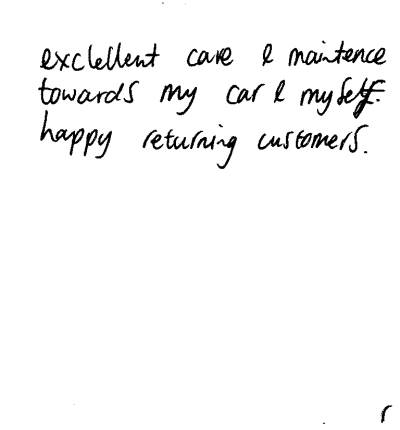 exclellent care & maintence
towards my car & myself.
happy returning customers.